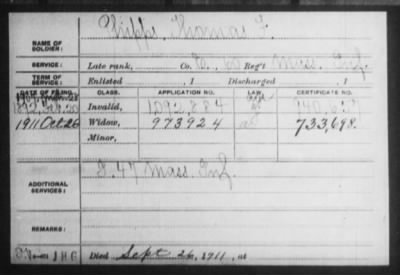 NAME OF SOLDIER: Phipps, Thomas F.
SERVICE: Late rank, Co. 60 Reg't Mass. Inf.
TERM OF SERVICE: Enlisted , 1 Discharged , 1
DATE OF FILING. CLASS. APPLICATION NO. LAW. CERTIFICATE NO.
Invalid, 1,092,884
1911 Oct. 26 Widow, 973924 733,698.
Minor,
ADDITIONAL SERVICES: 47 Mass. Inf.
REMARKS:
Died Sept 26, 1911, at